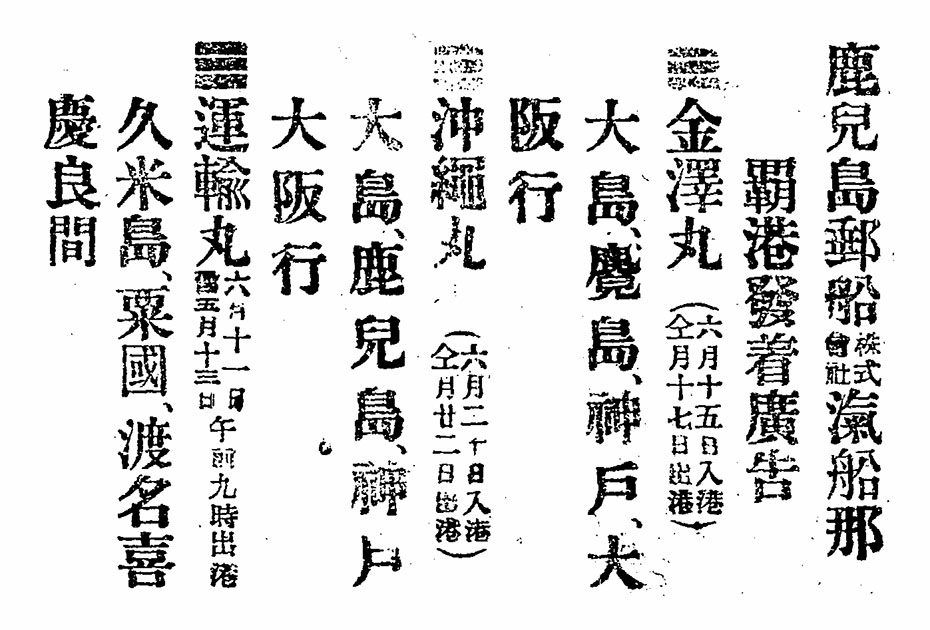 鹿兒島郵船株式會社滊船那
覇港發着廣告
金澤丸（六月十五日入港
仝月十七日出港）
大島、麑島、神戸、大
阪行
沖繩丸（六月二十日入港
仝月廿二日出港）
大島、鹿兒島、神戸
大阪行
運輸丸 六月十一日
舊五月十三日 午前九時出港
久米島、粟國、渡名喜
慶良間